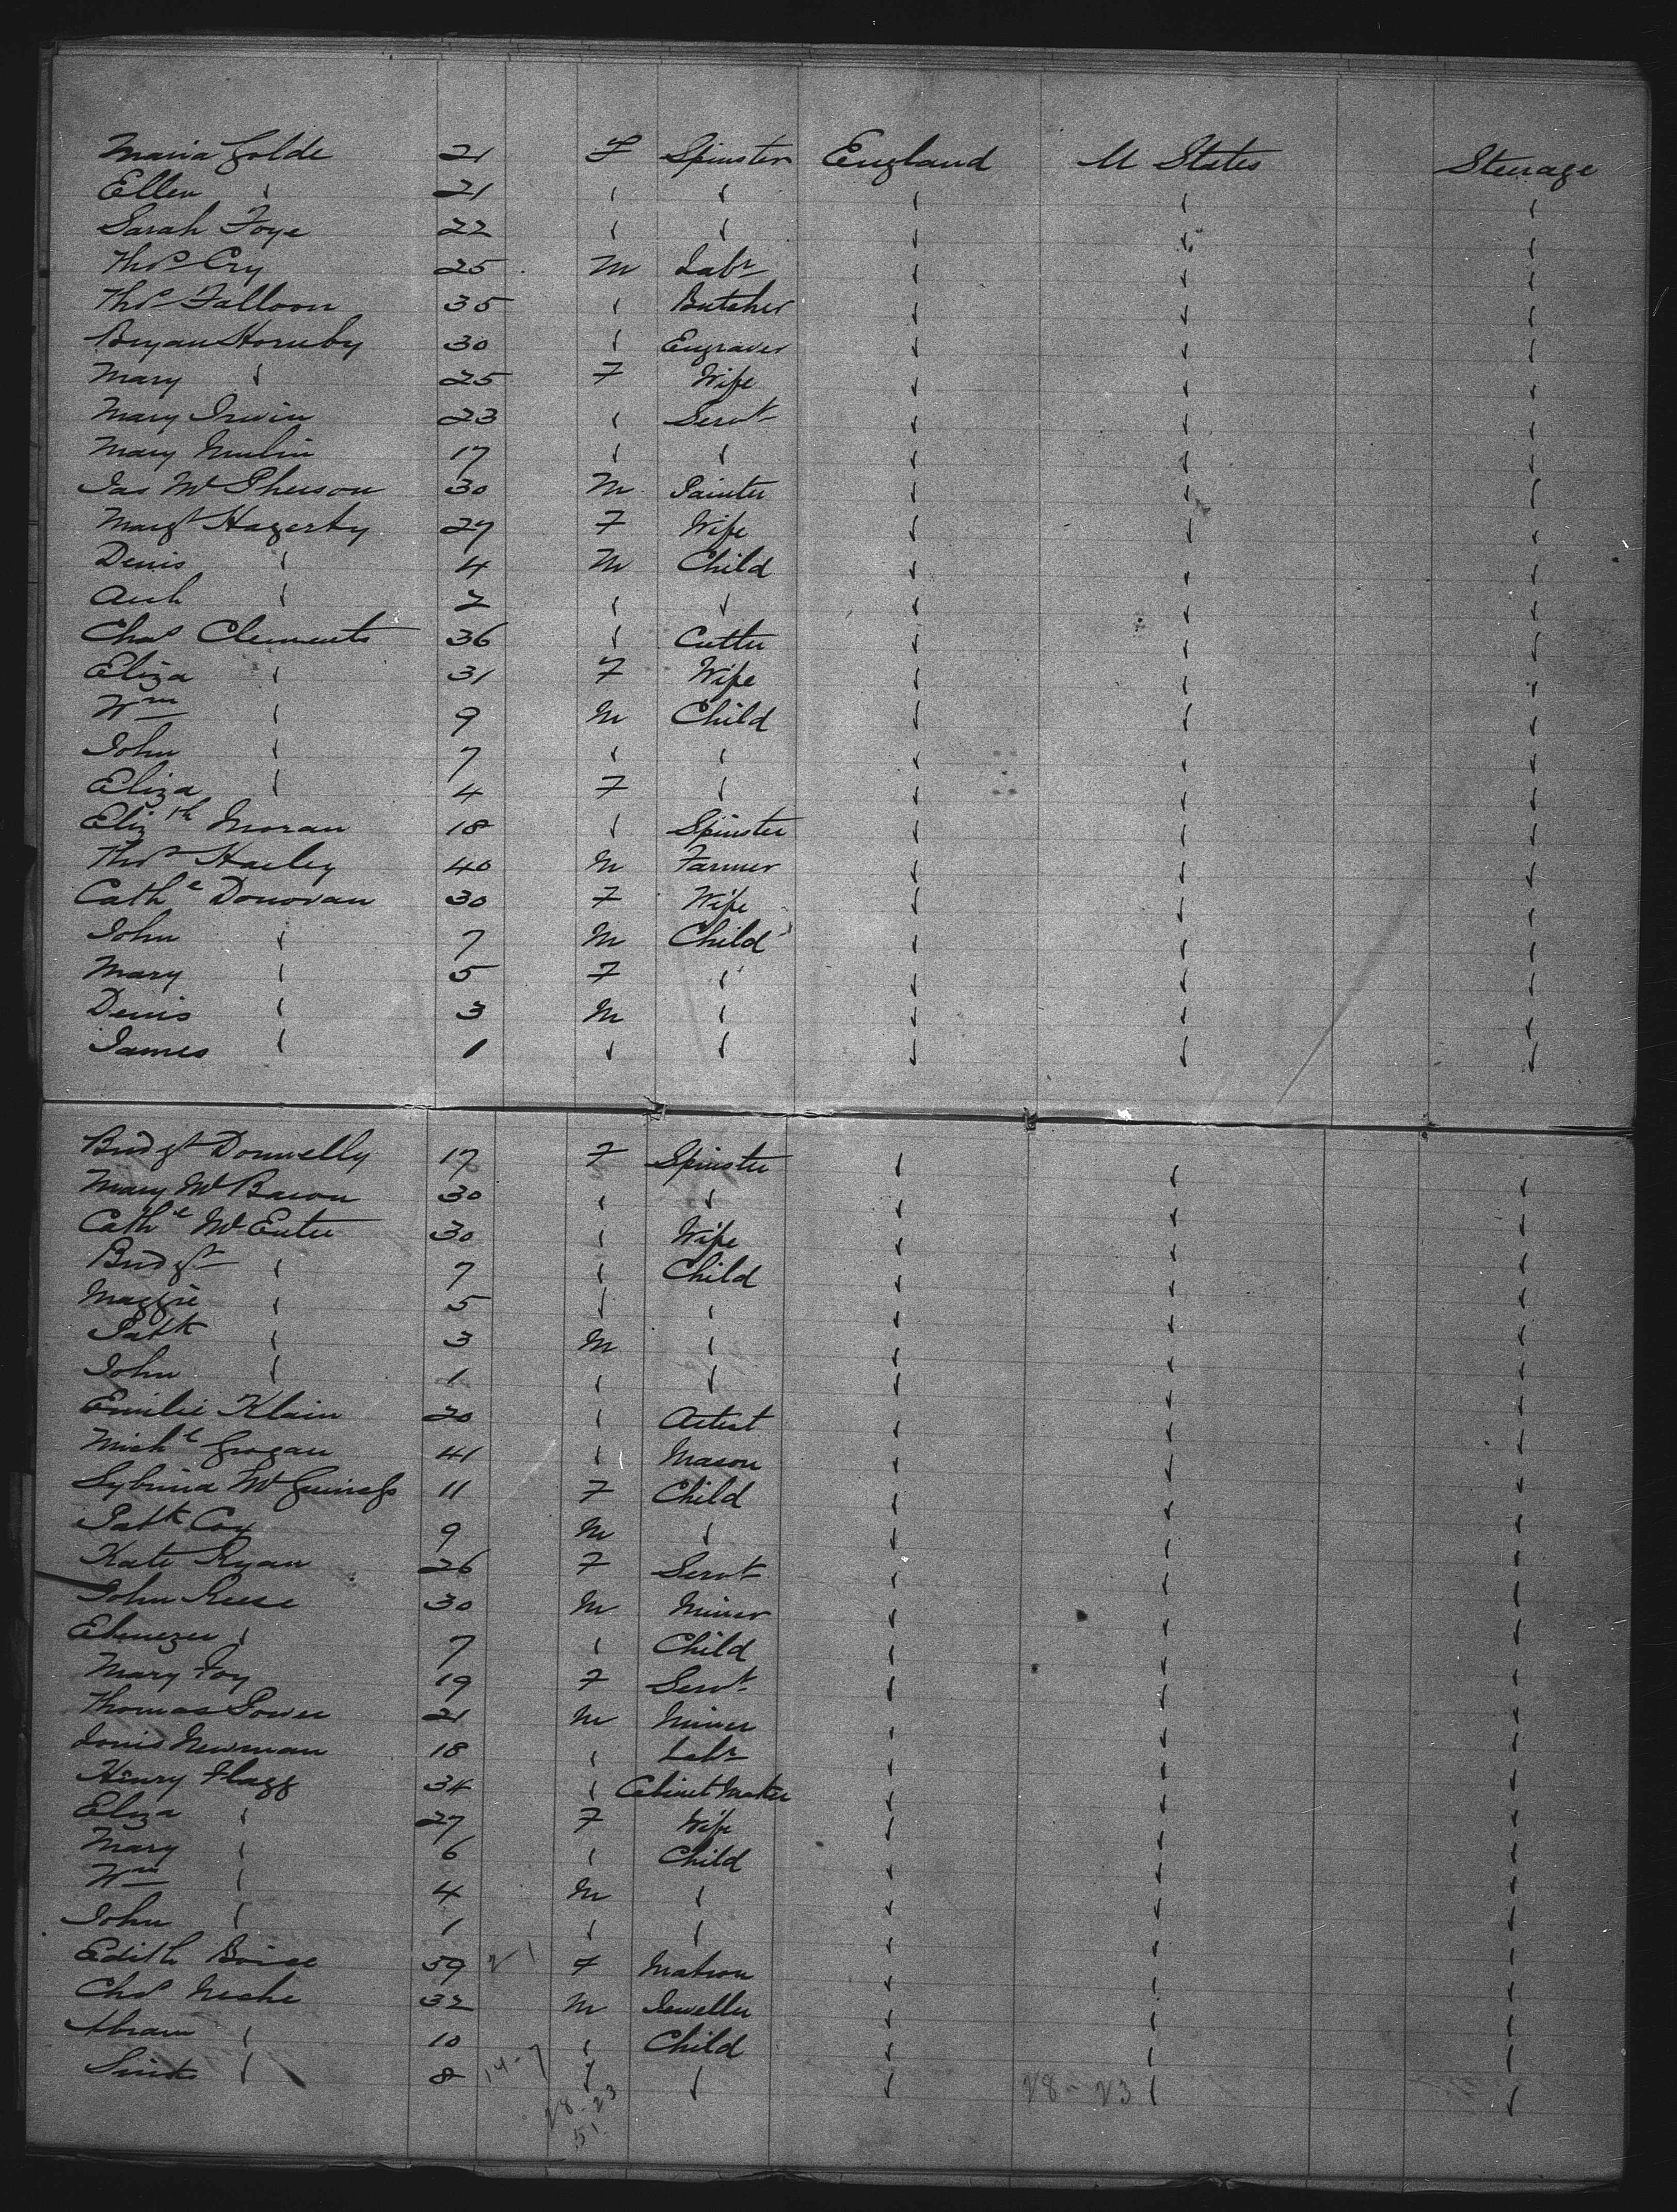 Maria Golde 21 F Spinster England U States Steerage
Ellen " 21 " " " " "
Sarah Foye 22 " " " " "
Thos Cry 25 M Labr " " "
Thos Falloon 35 " Butcher " " "
Bryan Hornby 30 " Engraver " " "
Mary " 25 F Wife " " "
Mary Irwin 23 " Servt " " "
Mary Mulin 17 " " " " "
Jas McPherson 30 M Painter " " "
Margt Hagerty 27 F Wife " " "
Denis " 4 M Child " " "
Arch " 2 " " " " "
Chas Clements 36 " Cutter " " "
Eliza " 31 F Wife " " "
Wm " 9 M Child " " "
John " 7 " " " " "
Eliza " 4 F " " " "
Elizth Moran 18 " Spinster " " "
Thos Harley 40 M Farmer " " "
Cathe Donovan 30 F Wife " " "
John " 7 M Child " " "
Mary " 5 F " " " "
Denis " 3 M " " " "
James " 1 " " " " "
Bridgt Donnelly 17 F Spinster " " "
Mary McBaron 30 " " " " "
Cathe McEnter 30 " Wife " " "
Bridgt " 7 " Child " " "
Maggie " 5 " " " " "
Patk " 3 M " " " "
John " 1 " " " " "
Emilie Klain 20 " Artist " " "
Michl Grogan 41 " Mason " " "
Sybrina McGuiness 11 F Child " " "
Patk Coy 9 M " " " "
Kate Ryan 26 F Servt " " "
John Reese 30 M Miner " " "
Ebenezer " 7 " Child " " "
Mary Foy 19 F Servt " " "
Thomas Power 21 M Miner " " "
Louis Newman 18 " Labr " " "
Henry Flagg 34 " Cabinet Maker " " "
Eliza " 27 F Wife " " "
Mary " 6 " Child " " "
Wm " 4 M " " " "
John " 1 " " " " "
Edith 59 2 1 F Matron " " "
Chs Neche 32 M Jeweller " " "
Abram " 10 " Child " " "
" 8 14-7 " " " 28-23 " "
28-23
51